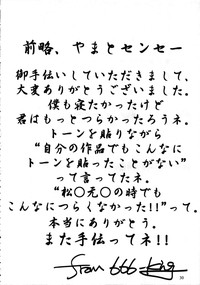 前略、やまとセンセー
御手伝いしていただきまして、
大変ありがとうございました。
僕も寝たかったけど
君はもっとつらかったろうネ。
トーンを貼りながら
“自分の作品でもこんなに
トーンを貼ったことがない”
って言ってたネ。
“松〇元〇の時でも
こんなにつらくなかった!!”って。
本当にありがとう。
また手伝ってネ!!
from 666